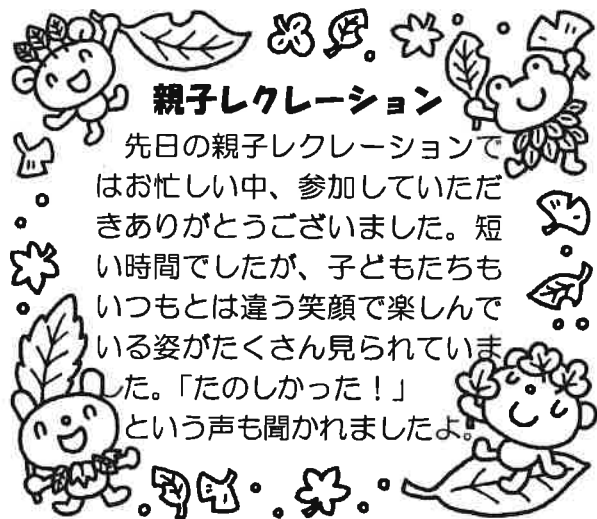 親子レクレーション
先日の親子レクレーションで
はお忙しい中、参加していただ
きありがとうございました。短
い時間でしたが、子どもたちも
いつもとは違う笑顔で楽しんで
いる姿がたくさん見られていま
した。「たのしかった!」
という声も聞かれましたよ。